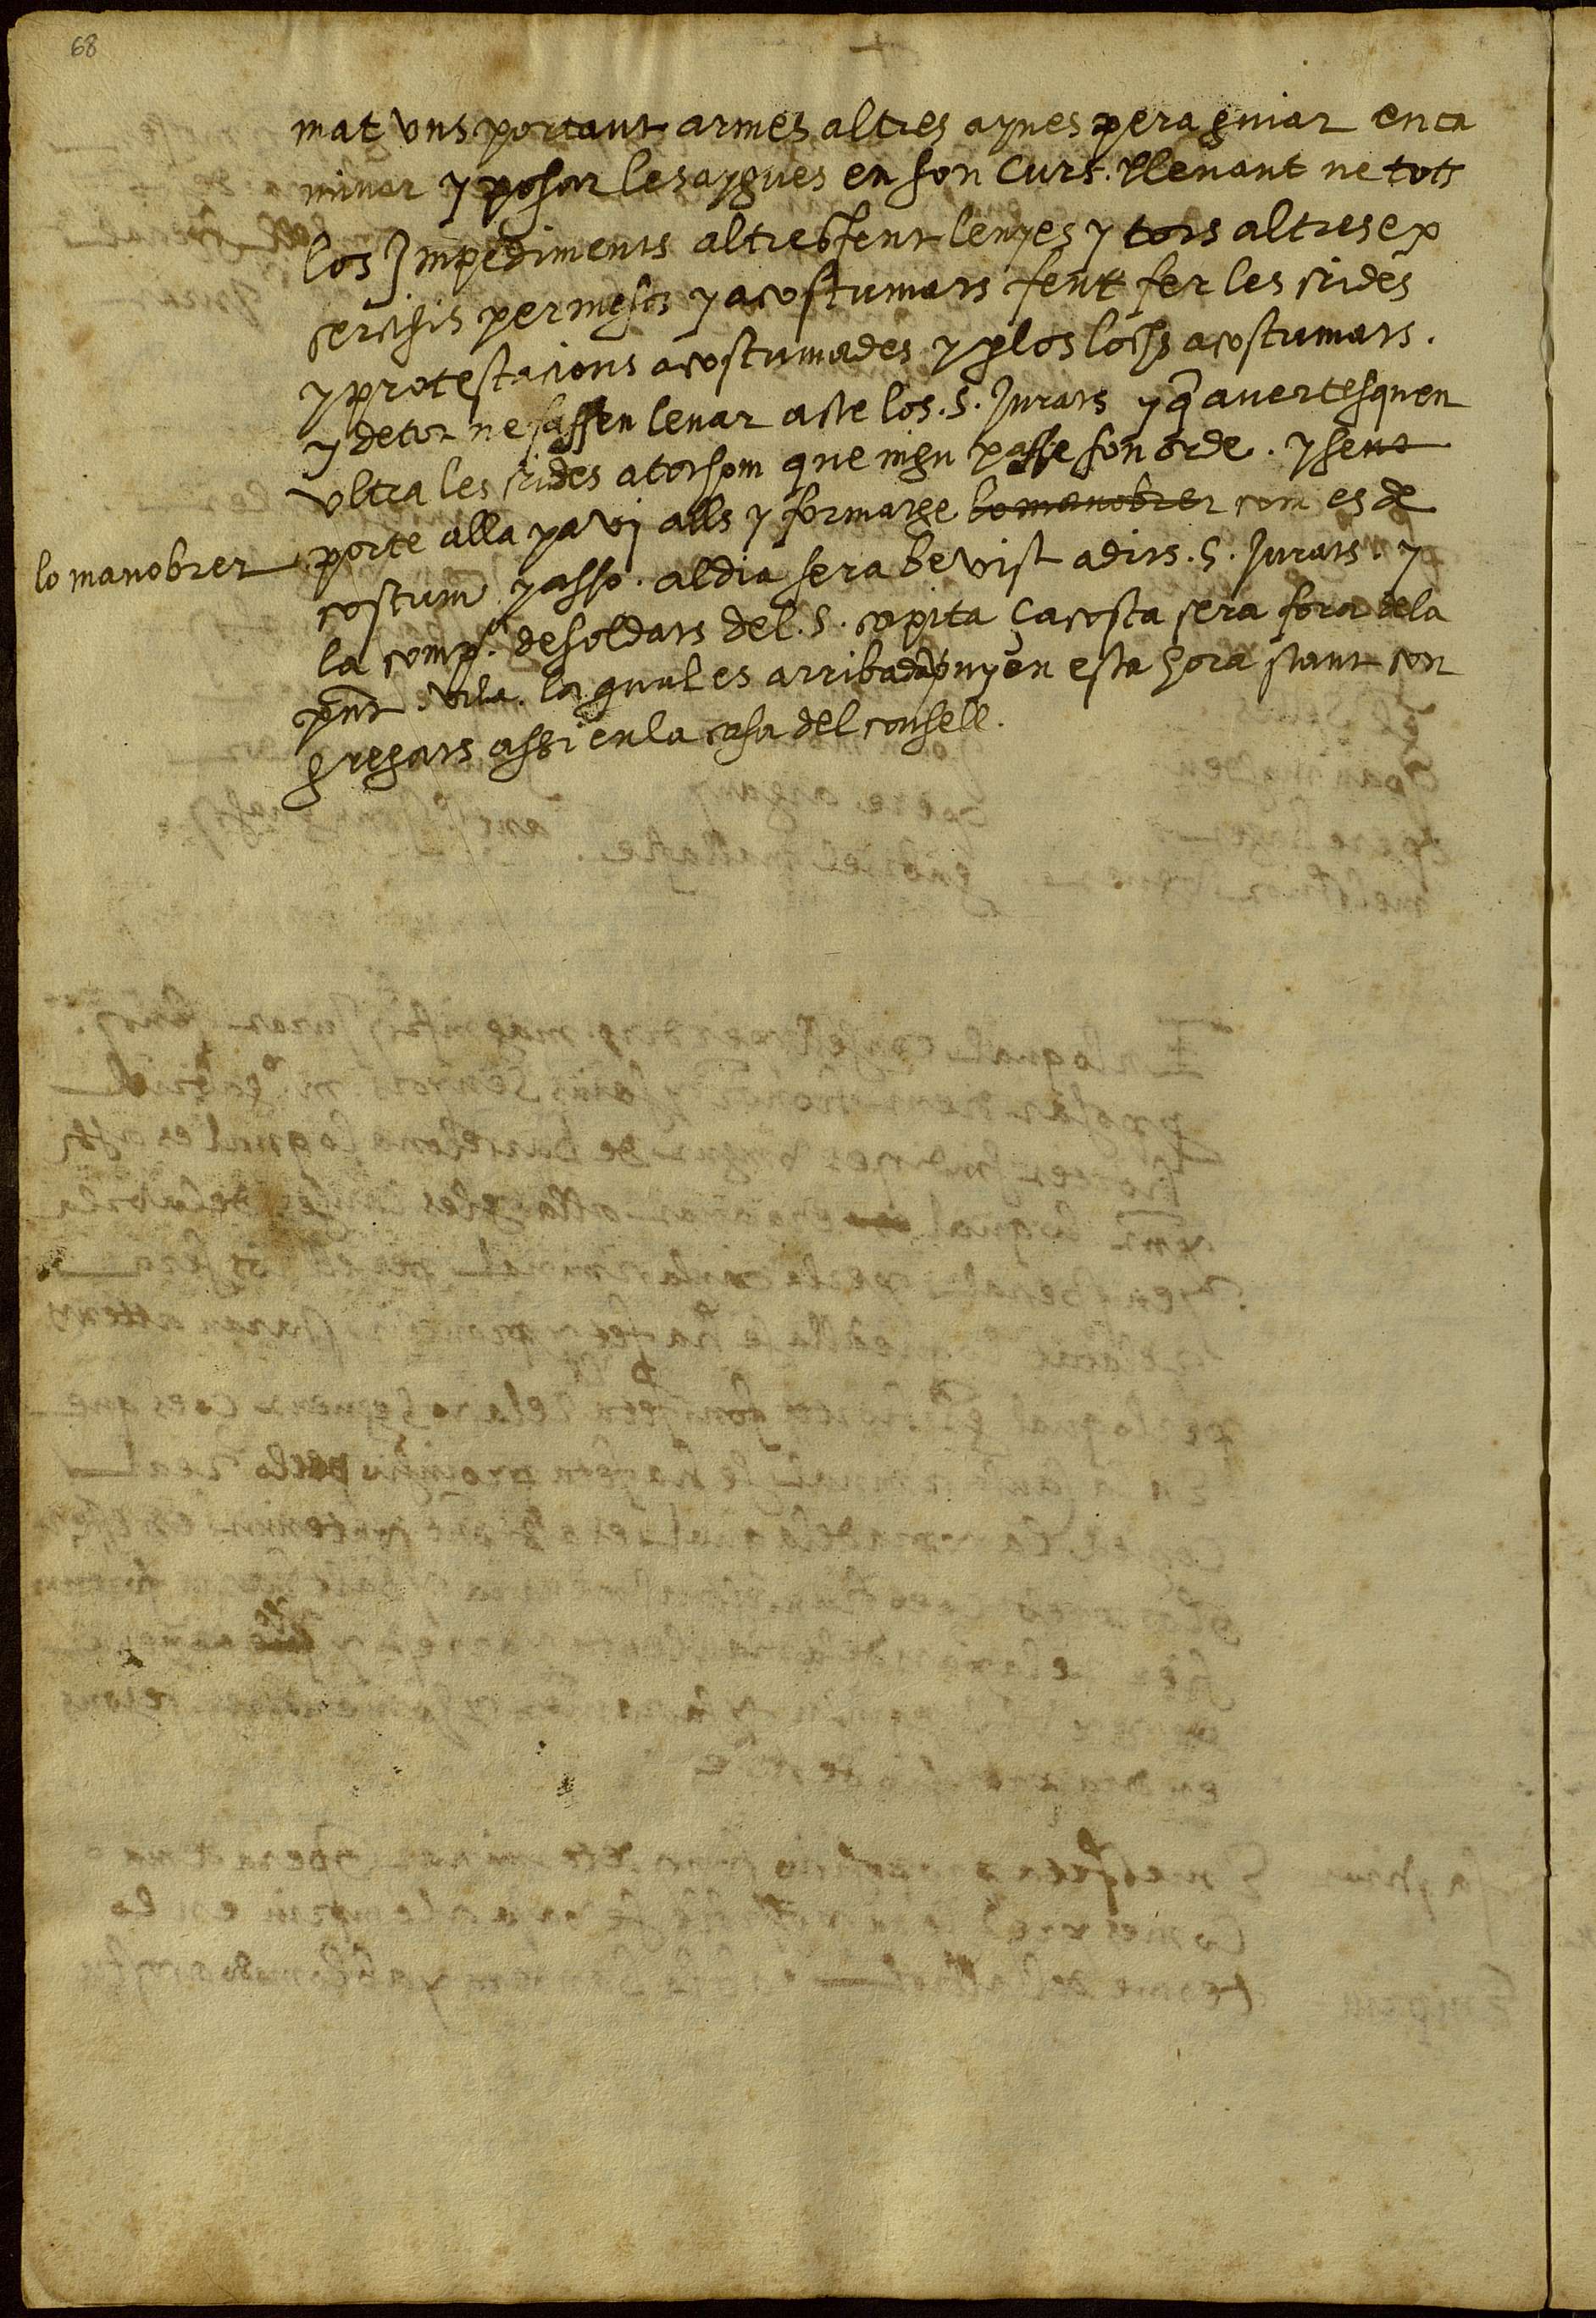 68
mat vns portant armes altres aynes pera guiar enca
minar y posar les aygues en son curs. llevant ne tots
los Jmpediments altres fent lenyes y tots altres ex
sercisis permesos y acostumats fent fer les crides
y protestacions acostumades y p los lochs acostumats.
y de tot ne fassen levar acte los .S. Jurats y q avertesquen
vltra les crides a tothom que ningu passe son orde. y
porte alla pa vj alls y formatge lo manobrer com es de
lo manobrer
costum y asso. al dia sera be vist a dits .S. Jurats. y
la comp.ª de soldats del .S. capita Çacosta sera fora dela
pnt vila. la qual es arribada en esta hora stant con
gregats assi en la casa del consell.